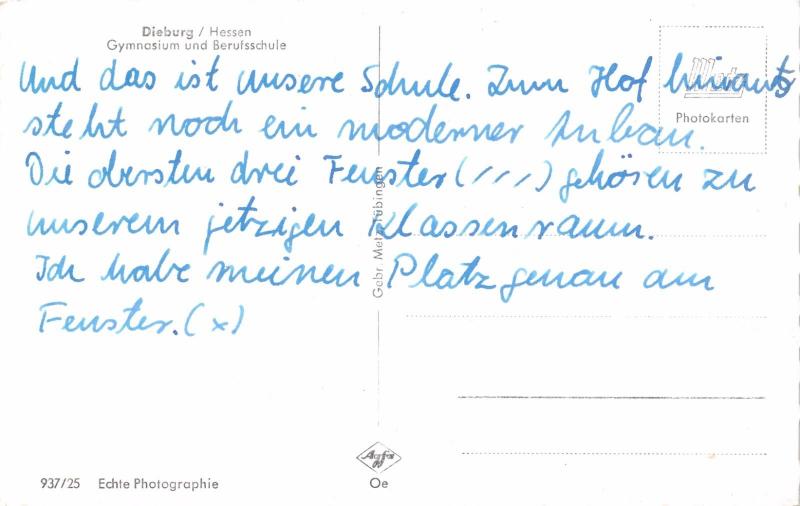 Dieburg / Hessen
Gymnasium und Berufsschule
Und das ist unsere Schule. Zum Hof hinaus
steht noch ein moderner Anbau.
Die obersten drei Fenster (///) gehören zu
unserem jetzigen Klassenraum.
Ich habe meinen Platz genau am
Fenster. (x)
Metz
Photokarten
Gebr. Metz Tübingen
937/25 Echte Photographie
Agfa
Oe